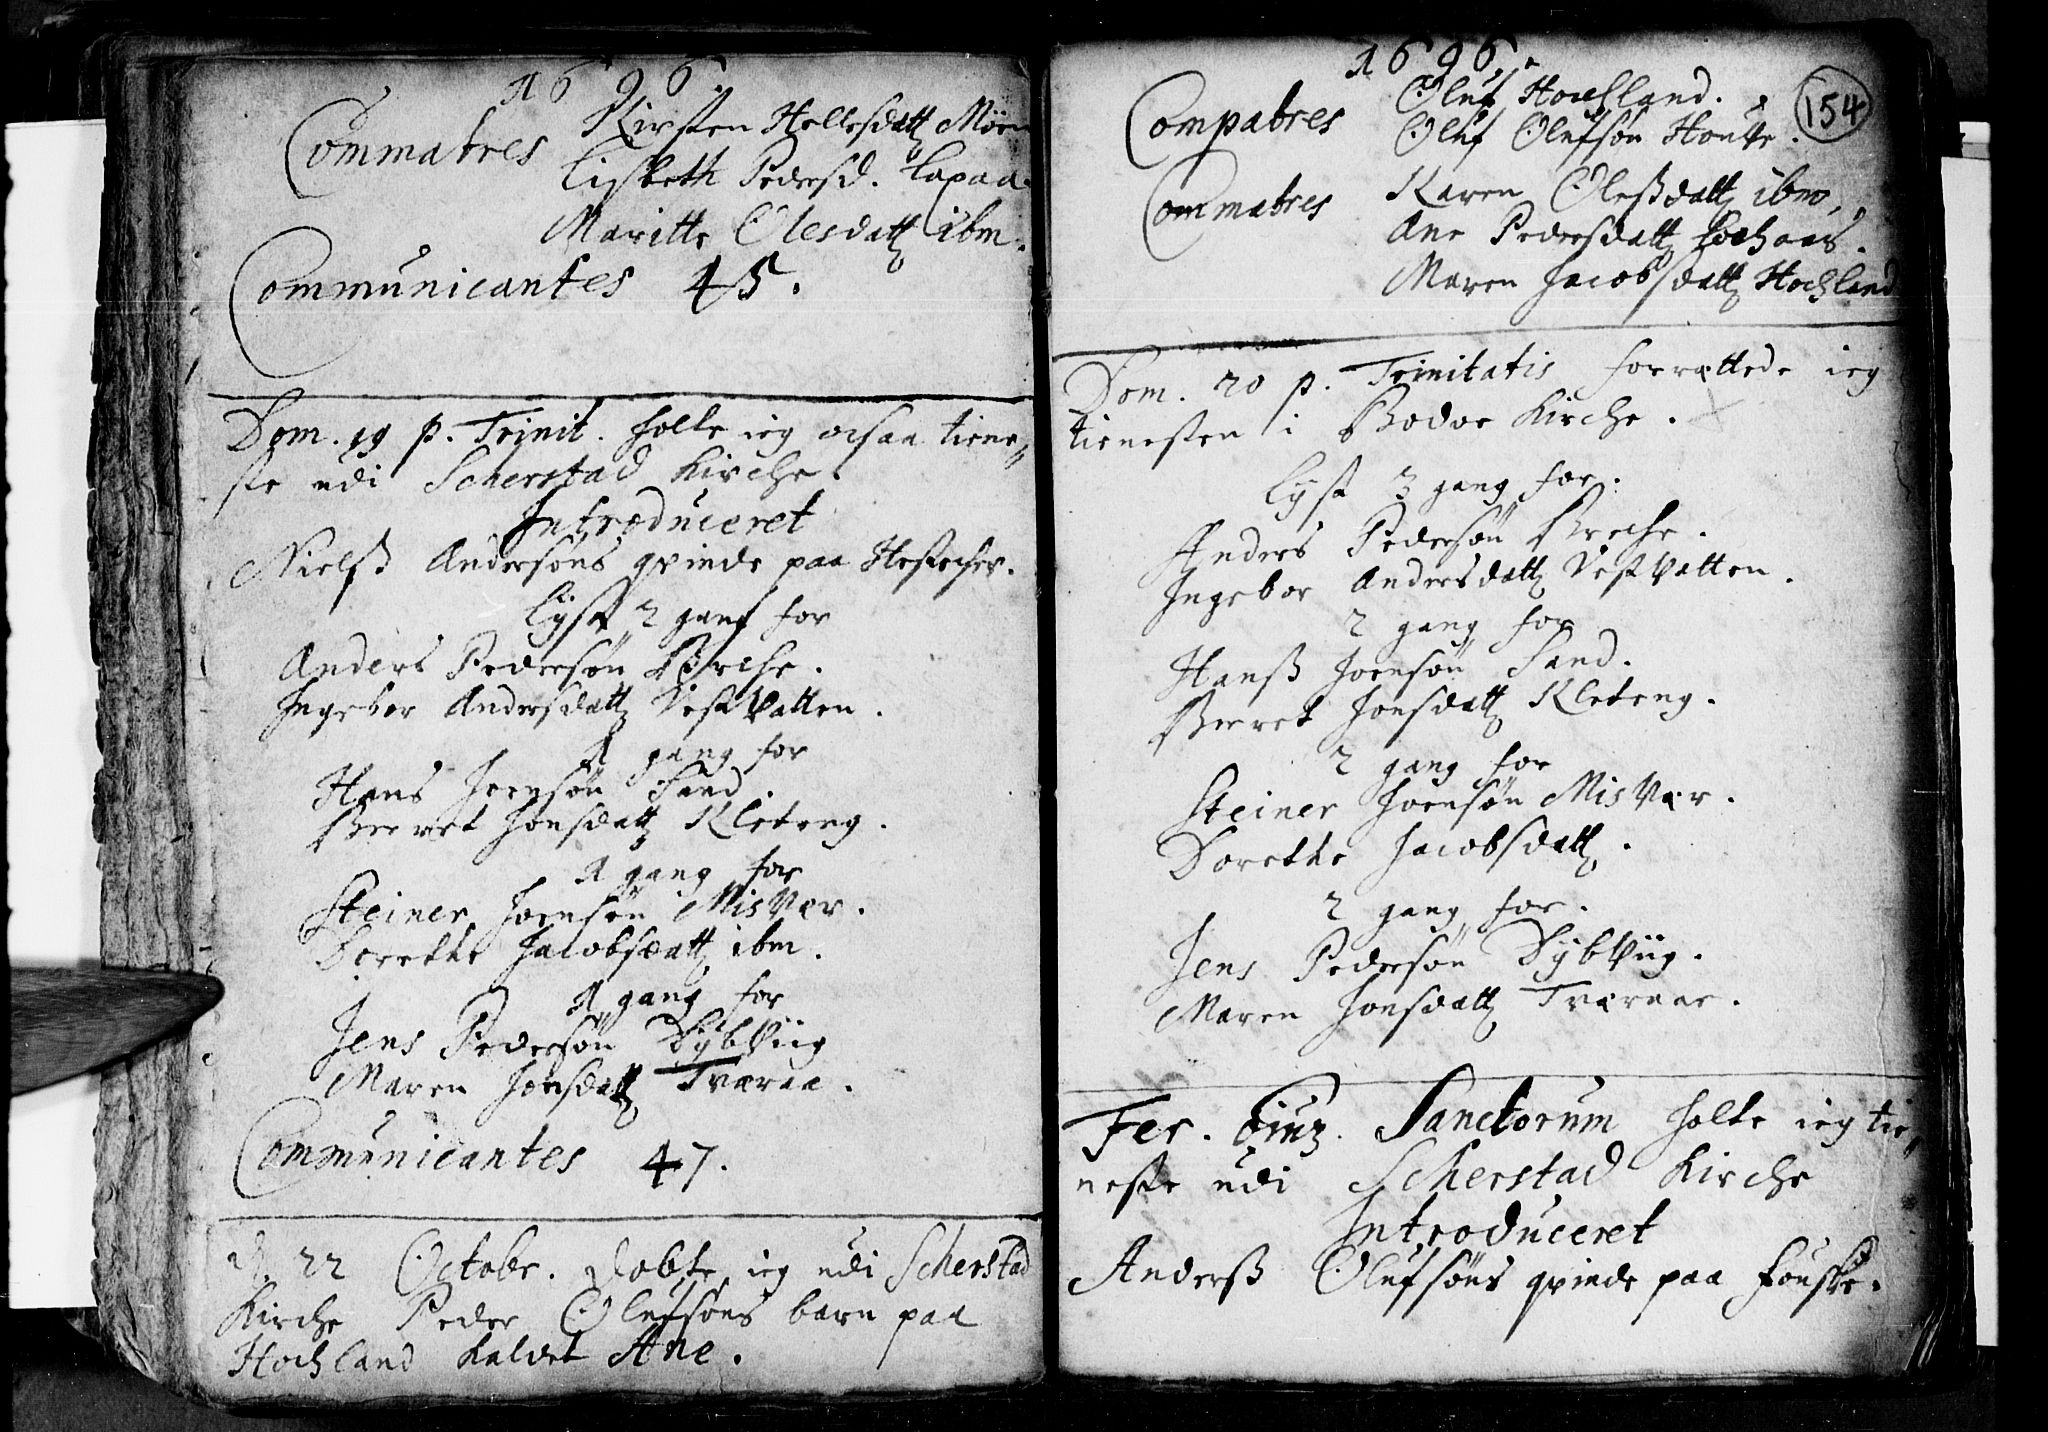 1696.
Commatres Kirsten Hellesdatt Möen
Lisbeth Pedersd. Lapaa.
Maritte Olesdatt ibm.
Communicantes 45.
Dom. 19 p. Trinit. holte ieg ochsaa tiene„
ste udi Scherstad Kirche.
Introduceret
Nielß Andersöns qvinde paa Hestechr.
Lyst 2 gang for
Anders Pedersön Breche.
Ingebor Andersdatt Vestvatten.
1 gang for
Hans Joensön Sand.
Beret Jonsdatt Kleteng.
1 gang for
Steiner Joensön Misvær.
Dorethe Jacobsdatt ibm.
1 gang for
Jens Pedersön Dybviig
Maren Jonsdatt Tværaa.
Communicantes 47.
d. 22 Octobr. döbte ieg udi Scherstad
Kirche Peder Olufsöns barn paa
Hochland kaldet Ane.
1696.
154
Compatres Oluf Hochland.
Oluf Olufsön
Commatres Karen Oleßdatt ibm.
Ane Pedersdatt
Maren Jacobsdatt Hochland
Dom. 20 p. Trinitatis forrættede ieg
tienesten i Bodöe Kirche.
Lyst 3 gang for.
Anders Pedersön Breche.
Ingebor Andersdatt Vestvatten.
2 gang for
Hanß Joensön Sand.
Beret Jonsdatt Kleteng.
2 gang for
Steiner Joensön Misvær.
Dorethe Jacobsdatt.
2 gang for.
Jens Pedersön Dybviig.
Maren Jonsdatt Tværaae.
Fer. Sanctorum holte ieg tie„
neste udi Scherstad Kirche
Introduceret
Anderß Olufsöns qvinde paa Fouske.